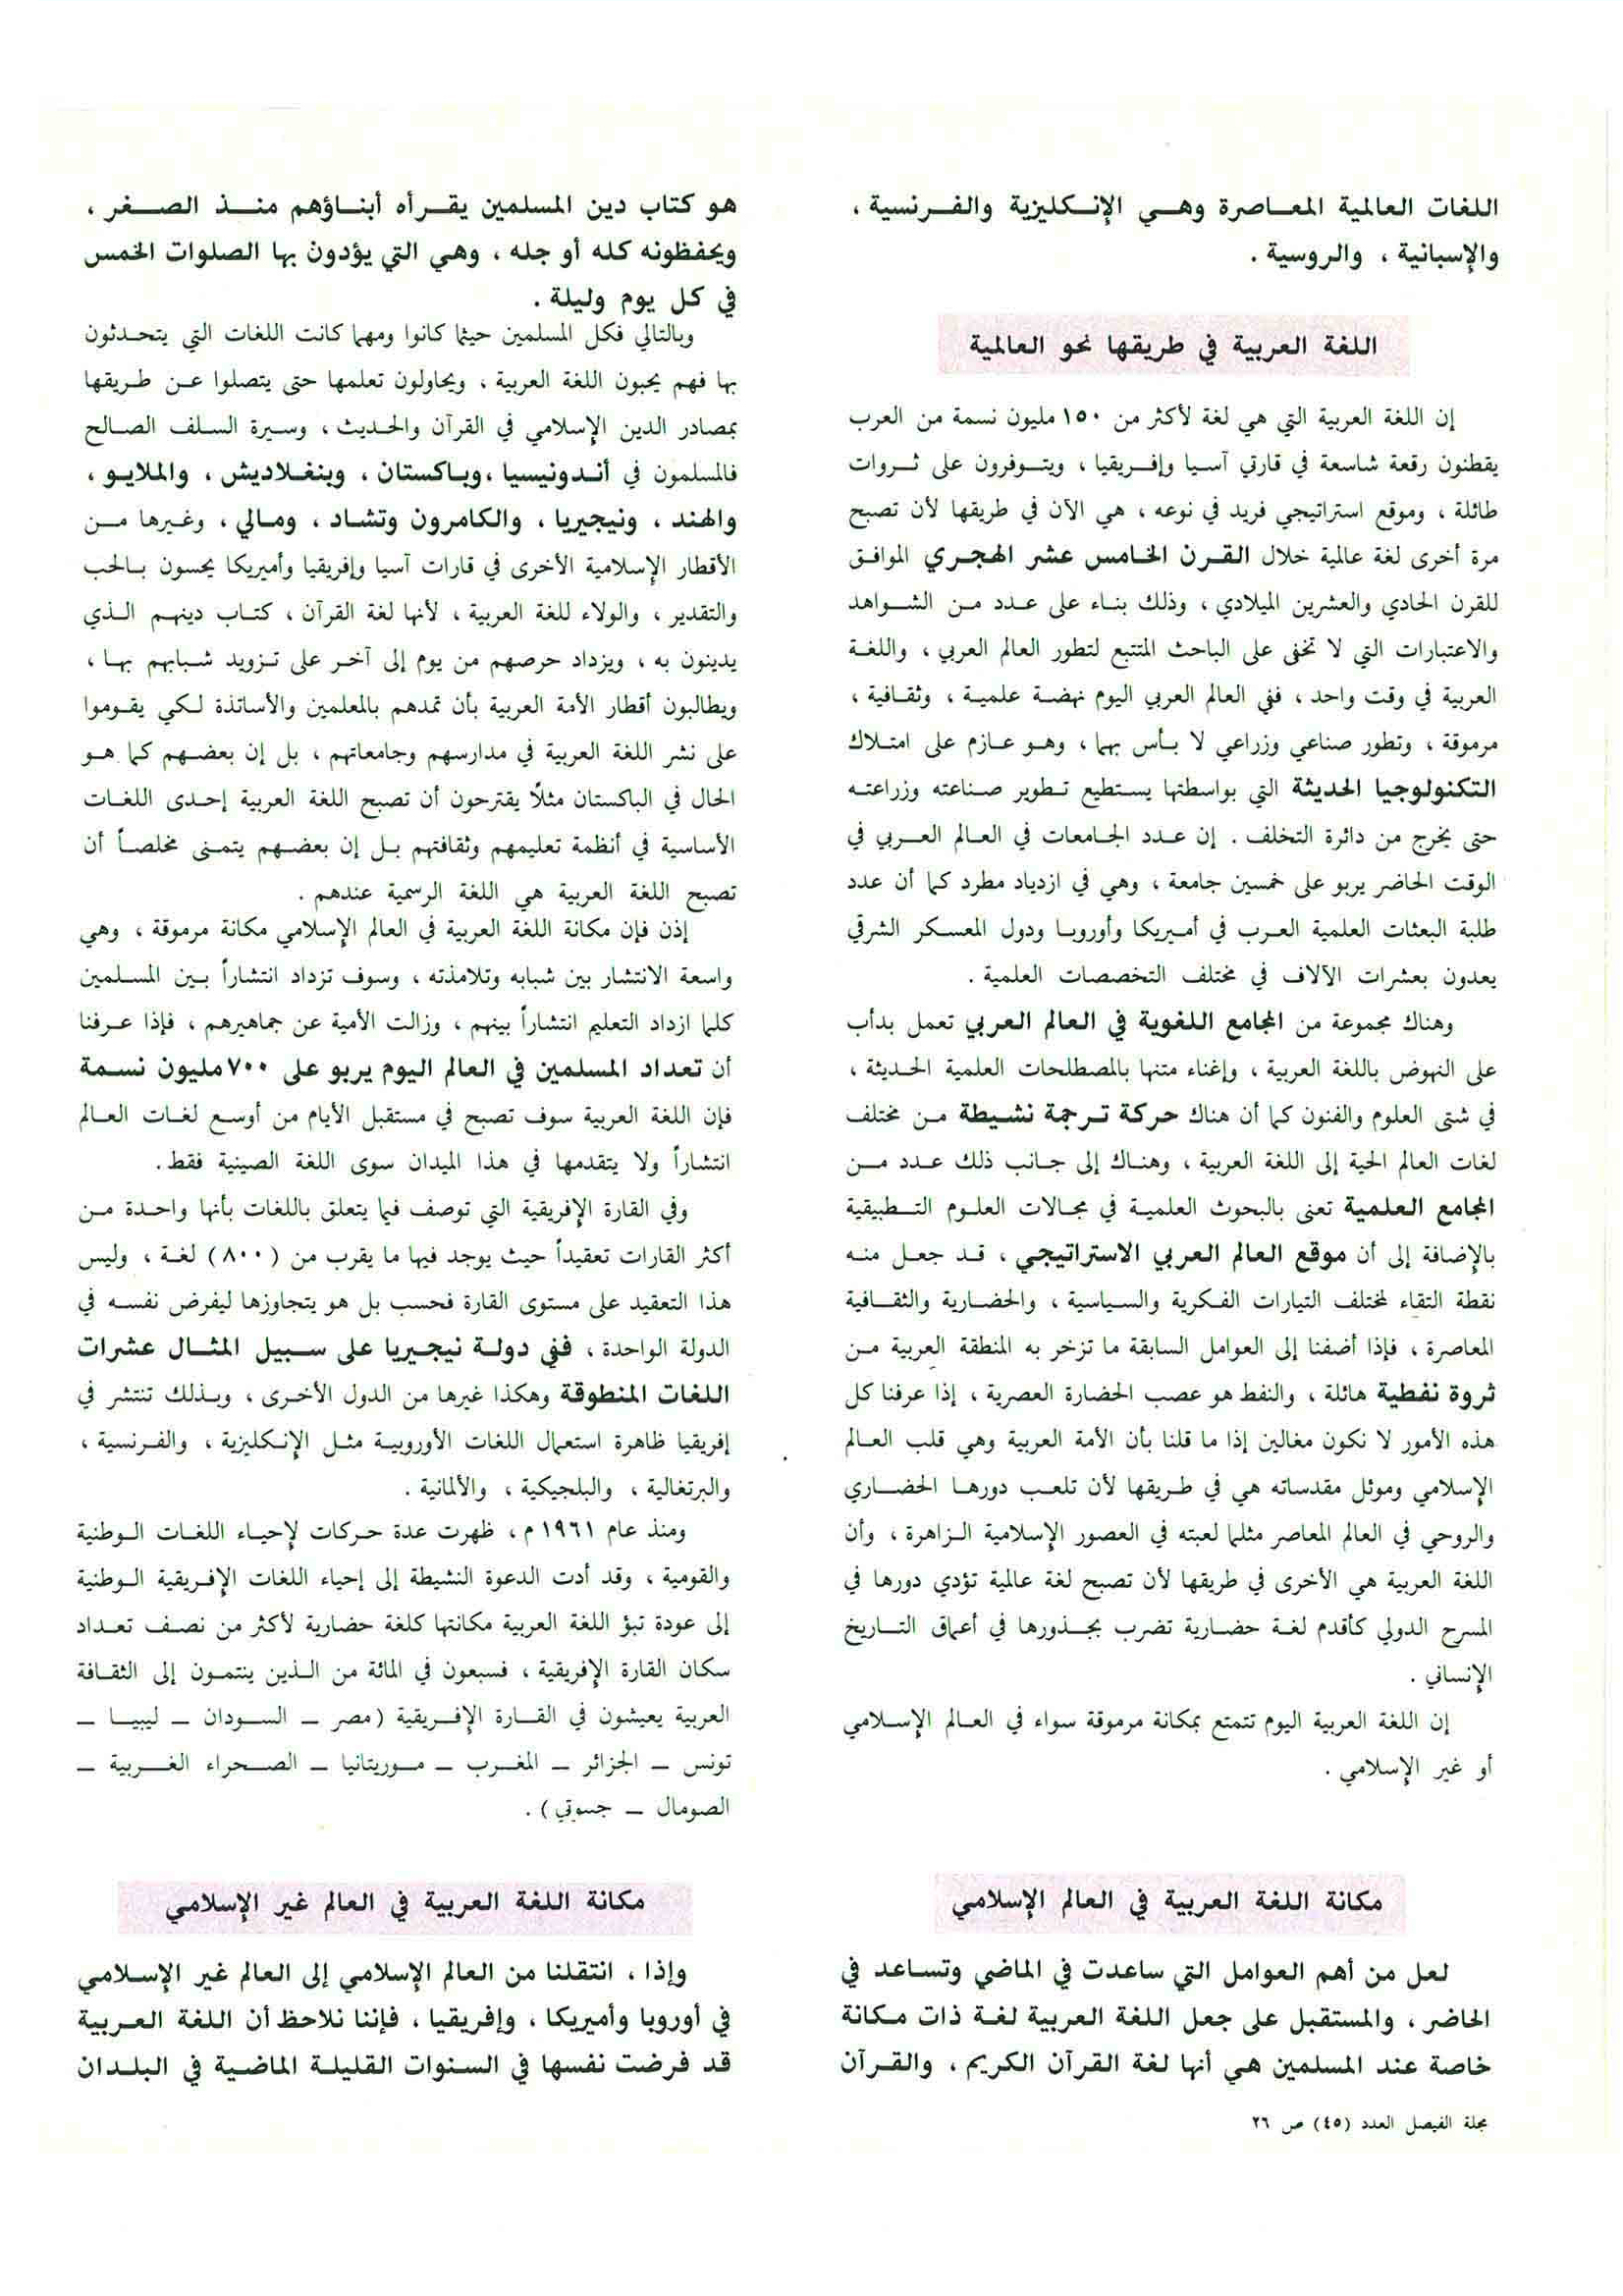 اللغات العالمية المعاصرة وهي الإنكليزية والفرنسية ،
والإسبانية ، والروسية .
اللغة العربية في طريقها نحو العالمية
إن اللغة العربية التي هي لغة لأكثر من ١٥٠ مليون نسمة من العرب
يقطنون رقعة شاسعة في قارتي آسيا وإفريقيا ، ويتوفرون على ثروات
طائلة ، وموقع استراتيجي فريد في نوعه ، هي الآن في طريقها لأن تصبح
مرة أخرى لغة عالمية خلال القرن الخامس عشر الهجري الموافق
للقرن الحادي والعشرين الميلادي ، وذلك بناء على عدد من الشواهد
والاعتبارات التي لا تخفى على الباحث المتتبع لتطور العالم العربي ، واللغة
العربية في وقت واحد ، ففي العالم العربي اليوم نهضة علمية ، وثقافية ،
مرموقة ، وتطور صناعي وزراعي لا بأس بهما ، وهو عازم على امتلاك
التكنولوجيا الحديثة التي بواسطتها يستطيع تطوير صناعته وزراعته
حتى يخرج من دائرة التخلف . إن عدد الجامعات في العالم العربي في
الوقت الحاضر يربو على خمسين جامعة ، وهي في ازدياد مطرد كما أن عدد
طلبة البعثات العلمية العرب في أميريكا وأوروبا ودول المعسكر الشرقي
يعدون بعشرات الآلاف في مختلف التخصصات العلمية .
وهناك مجموعة من المجامع اللغوية في العالم العربي تعمل بدأب
على النهوض باللغة العربية ، وإغناء متنها بالمصطلحات العلمية الحديثة ،
في شتى العلوم والفنون كما أن هناك حركة ترجمة نشيطة من مختلف
لغات العالم الحية إلى اللغة العربية ، وهناك إلى جانب ذلك عدد من
المجامع العلمية تعنى بالبحوث العلمية في مجالات العلوم التطبيقية
بالإضافة إلى أن موقع العالم العربي الاستراتيجي ، قد جعل منه
نقطة التقاء لمختلف التيارات الفكرية والسياسية ، والحضارية والثقافية
المعاصرة ، فإذا أضفنا إلى العوامل السابقة ما تزخر به المنطقة العربية من
ثروة نفطية هائلة ، والنفط هو عصب الحضارة العصرية ، إذا عرفنا كل
هذه الأمور لا نكون مغالين إذا ما قلنا بأن الأمة العربية وهي قلب العالم
الإسلامي وموئل مقدساته هي في طريقها لأن تلعب دورها الحضاري
والروحي في العالم المعاصر مثلما لعبته في العصور الإسلامية الزاهرة ، وأن
اللغة العربية هي الأخرى في طريقها لأن تصبح لغة عالمية تؤدي دورها في
المسرح الدولي كأقدم لغة حضارية تضرب بجذورها في أعماق التاريخ
الإنساني .
إن اللغة العربية اليوم تتمتع بمكانة مرموقة سواء في العالم الإسلامي
أو غير الإسلامي .
مكانة اللغة العربية في العالم الإسلامي
لعل من أهم العوامل التي ساعدت في الماضي وتساعد في
الحاضر ، والمستقبل على جعل اللغة العربية لغة ذات مكانة
خاصة عند المسلمين هي أنها لغة القرآن الكريم ، والقرآن
هو كتاب دين المسلمين يقرأه أبناؤهم منذ الصغر ،
ويحفظونه كله أو جله ، وهي التي يؤدون بها الصلوات الخمس
في كل يوم وليلة .
وبالتالي فكل المسلمين حيثما كانوا ومهما كانت اللغات التي يتحدثون
بها فهم يحبون اللغة العربية ، ويحاولون تعلمها حتى يتصلوا عن طريقها
بمصادر الدين الإسلامي في القرآن والحديث ، وسيرة السلف الصالح
فالمسلمون في أندونيسيا ، وباكستان ، وبنغلاديش ، والملايو ،
والهند ، ونيجيريا ، والكامرون وتشاد ، ومالي ، وغيرها من
الأقطار الإسلامية الأخرى في قارات آسيا وإفريقيا وأميريكا يحسون بالحب
والتقدير ، والولاء للغة العربية ، لأنها لغة القرآن ، كتاب دينهم الذي
يدينون به ، ويزداد حرصهم من يوم إلى آخر على تزويد شبابهم بها ،
ويطالبون أقطار الأمة العربية بأن تمدهم بالمعلمين والأساتذة لكي يقوموا
على نشر اللغة العربية في مدارسهم وجامعاتهم ، بل إن بعضهم كما هو
الحال في الباكستان مثلاً يقترحون أن تصبح اللغة العربية إحدى اللغات
الأساسية في أنظمة تعليمهم وثقافتهم بل إن بعضهم يتمنى مخلصاً أن
تصبح اللغة العربية هي اللغة الرسمية عندهم .
إذن فإن مكانة اللغة العربية في العالم الإسلامي مكانة مرموقة ، وهي
واسعة الانتشار بين شبابه وتلامذته ، وسوف تزداد انتشاراً بين المسلمين
كلما ازداد التعليم انتشاراً بينهم ، وزالت الأمية عن جماهيرهم ، فإذا عرفنا
أن تعداد المسلمين في العالم اليوم يربو على ٧٠٠ مليون نسمة
فإن اللغة العربية سوف تصبح في مستقبل الأيام من أوسع لغات العالم
انتشاراً ولا يتقدمها في هذا الميدان سوى اللغة الصينية فقط.
وفي القارة الإفريقية التي توصف فيما يتعلق باللغات بأنها واحدة من
أكثر القارات تعقيداً حيث يوجد فيها ما يقرب من (٨٠٠) لغة ، وليس
هذا التعقيد على مستوى القارة فحسب بل هو يتجاوزها ليفرض نفسه في
الدولة الواحدة ، ففي دولة نيجيريا على سبيل المثال عشرات
اللغات المنطوقة وهكذا غيرها من الدول الأخرى ، وبذلك تنتشر في
إفريقيا ظاهرة استعمال اللغات الأوروبية مثل الإنكليزية ، والفرنسية ،
والبرتغالية ، والبلجيكية ، والألمانية .
ومنذ عام ١٩٦١ م ، ظهرت عدة حركات لإحياء اللغات الوطنية
والقومية ، وقد أدت الدعوة النشيطة إلى إحياء اللغات الإفريقية الوطنية
إلى عودة تبؤ اللغة العربية مكانتها كلغة حضارية لأكثر من نصف تعداد
سكان القارة الإفريقية ، فسبعون في المائة من الذين ينتمون إلى الثقافة
العربية يعيشون في القارة الإفريقية (مصر – السودان – ليبيا –
تونس – الجزائر – المغرب – موريتانيا – الصحراء الغربية –
الصومال – جسوتي) .
مكانة اللغة العربية في العالم غير الإسلامي
وإذا ، انتقلنا من العالم الإسلامي إلى العالم غير الإسلامي
في أوروبا وأميريكا ، وإفريقيا ، فإننا نلاحظ أن اللغة العربية
قد فرضت نفسها في السنوات القليلة الماضية في البلدان
مجلة الفيصل العدد (٤٥) ص ٢٦